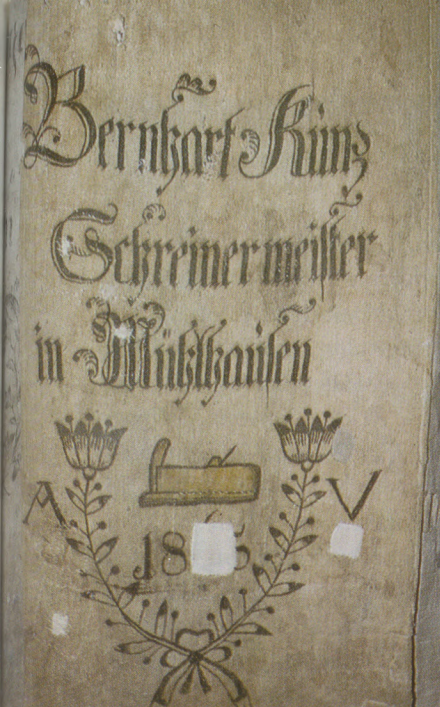 Bernhart Künz
Schreinermeister
in Mühlhausen
A V